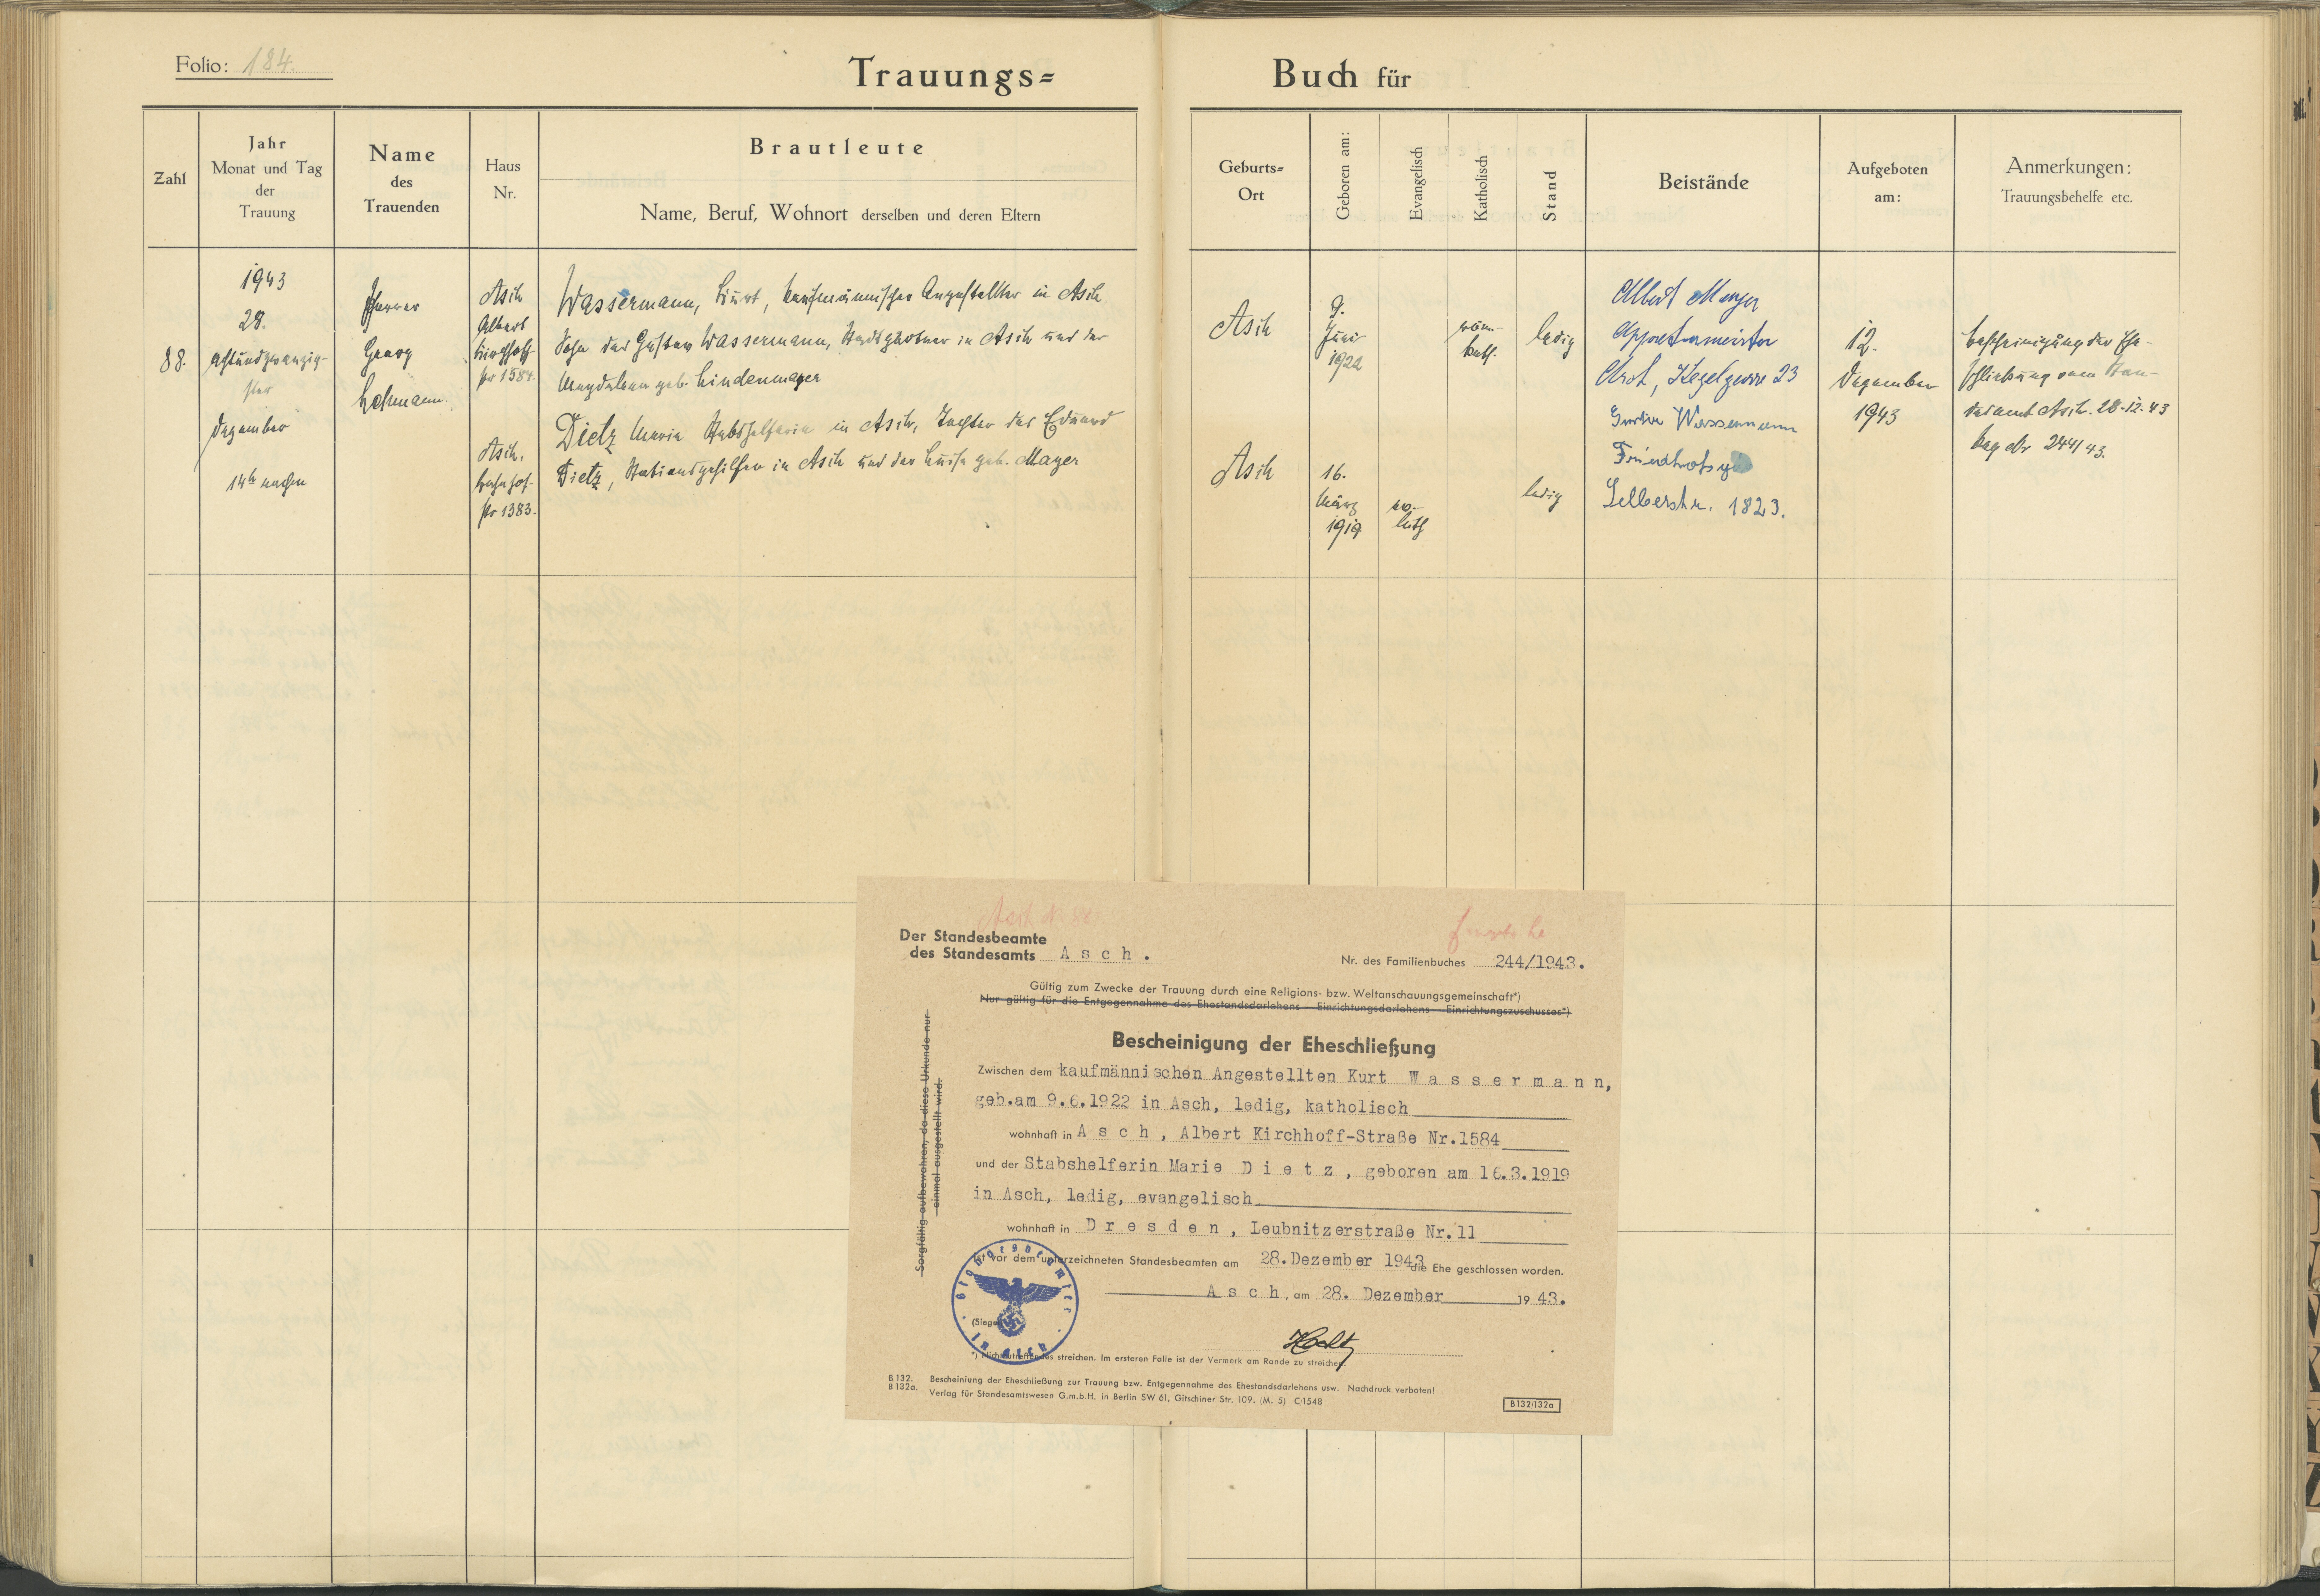 Folio: 184.
Trauungs=
Buch für
Zahl
Jahr
Monat und Tag
der
Trauung
Name
des
Trauenden
Haus
Nr.
Brautleute
Name, Beruf, Wohnort derselben und deren Eltern
Geburts=
Ort
Geboren am:
Evangelisch
Katholisch
Stand
Beistände
Aufgeboten
am:
Anmerkungen:
Trauungsbehelfe etc.
88.
1943
28.
achtundzwanzig-
ster
Dezember
14h nachm
Pfarrer
Georg
Lehmann.
Asch
Albert
Kirchhoff-
str 1584.
Wassermann, Kurt, kaufmännischer Angestellter in Asch
Sohn des Gustav Wassermann, Stadtgärtner in Asch und der
Magdalena geb. Lindenmayer
Asch,
Bahnhof-
str 1383.
Dietz Maria Stabshelferin in Asch, Tochter des Eduard
Dietz, Stationsgehilfen in Asch und der Luise geb. Mayer
Asch
9.
Juni
1922
röm.-
kath.
ledig
Asch
16.
März
1919
ev.-
luth
ledig
Albert Mayer
Appreturmeister
Asch, Kegelgasse 23
Gustav Wassermann
Selberstr. 1823.
12.
Dezember
1943
Bescheinigung der Ehe-
schließung vom Stan-
desamt Asch. 28.12.43
Reg Nr 244/43.
Der Standesbeamte
des Standesamts Asch.
Nr. des Familienbuches 244/1943.
Gültig zum Zwecke der Trauung durch eine Religions- bzw. Weltanschauungsgemeinschaft*)
Nur gültig für die Entgegennahme des Ehestandsdarlehens — Einrichtungsdarlehens — Einrichtungszuschusses*)
Sorgfältig aufbewahren, da diese Urkunde nur
einmal ausgestellt wird.
Bescheinigung der Eheschließung
Zwischen dem kaufmännischen Angestellten Kurt Wassermann,
geb.am 9.6.1922 in Asch, ledig, katholisch
wohnhaft in Asch, Albert Kirchhoff-Straße Nr.1584
und der Stabshelferin Marie Dietz, geboren am 16.3.1919
in Asch, ledig, evangelisch
wohnhaft in Dresden, Leubnitzerstraße Nr.11
ist vor dem unterzeichneten Standesbeamten am 28.Dezember 1943 die Ehe geschlossen worden.
Asch, am 28. Dezember 1943.
(Siegel)
*) Nichtzutreffendes streichen. Im ersteren Falle ist der Vermerk am Rande zu streichen.
B 132.
B 132a.
Bescheiniung der Eheschließung zur Trauung bzw. Entgegennahme des Ehestandsdarlehens usw. Nachdruck verboten!
Verlag für Standesamtswesen G.m.b.H. in Berlin SW 61, Gitschiner Str. 109. (M. 5) C/1548
B132/132a